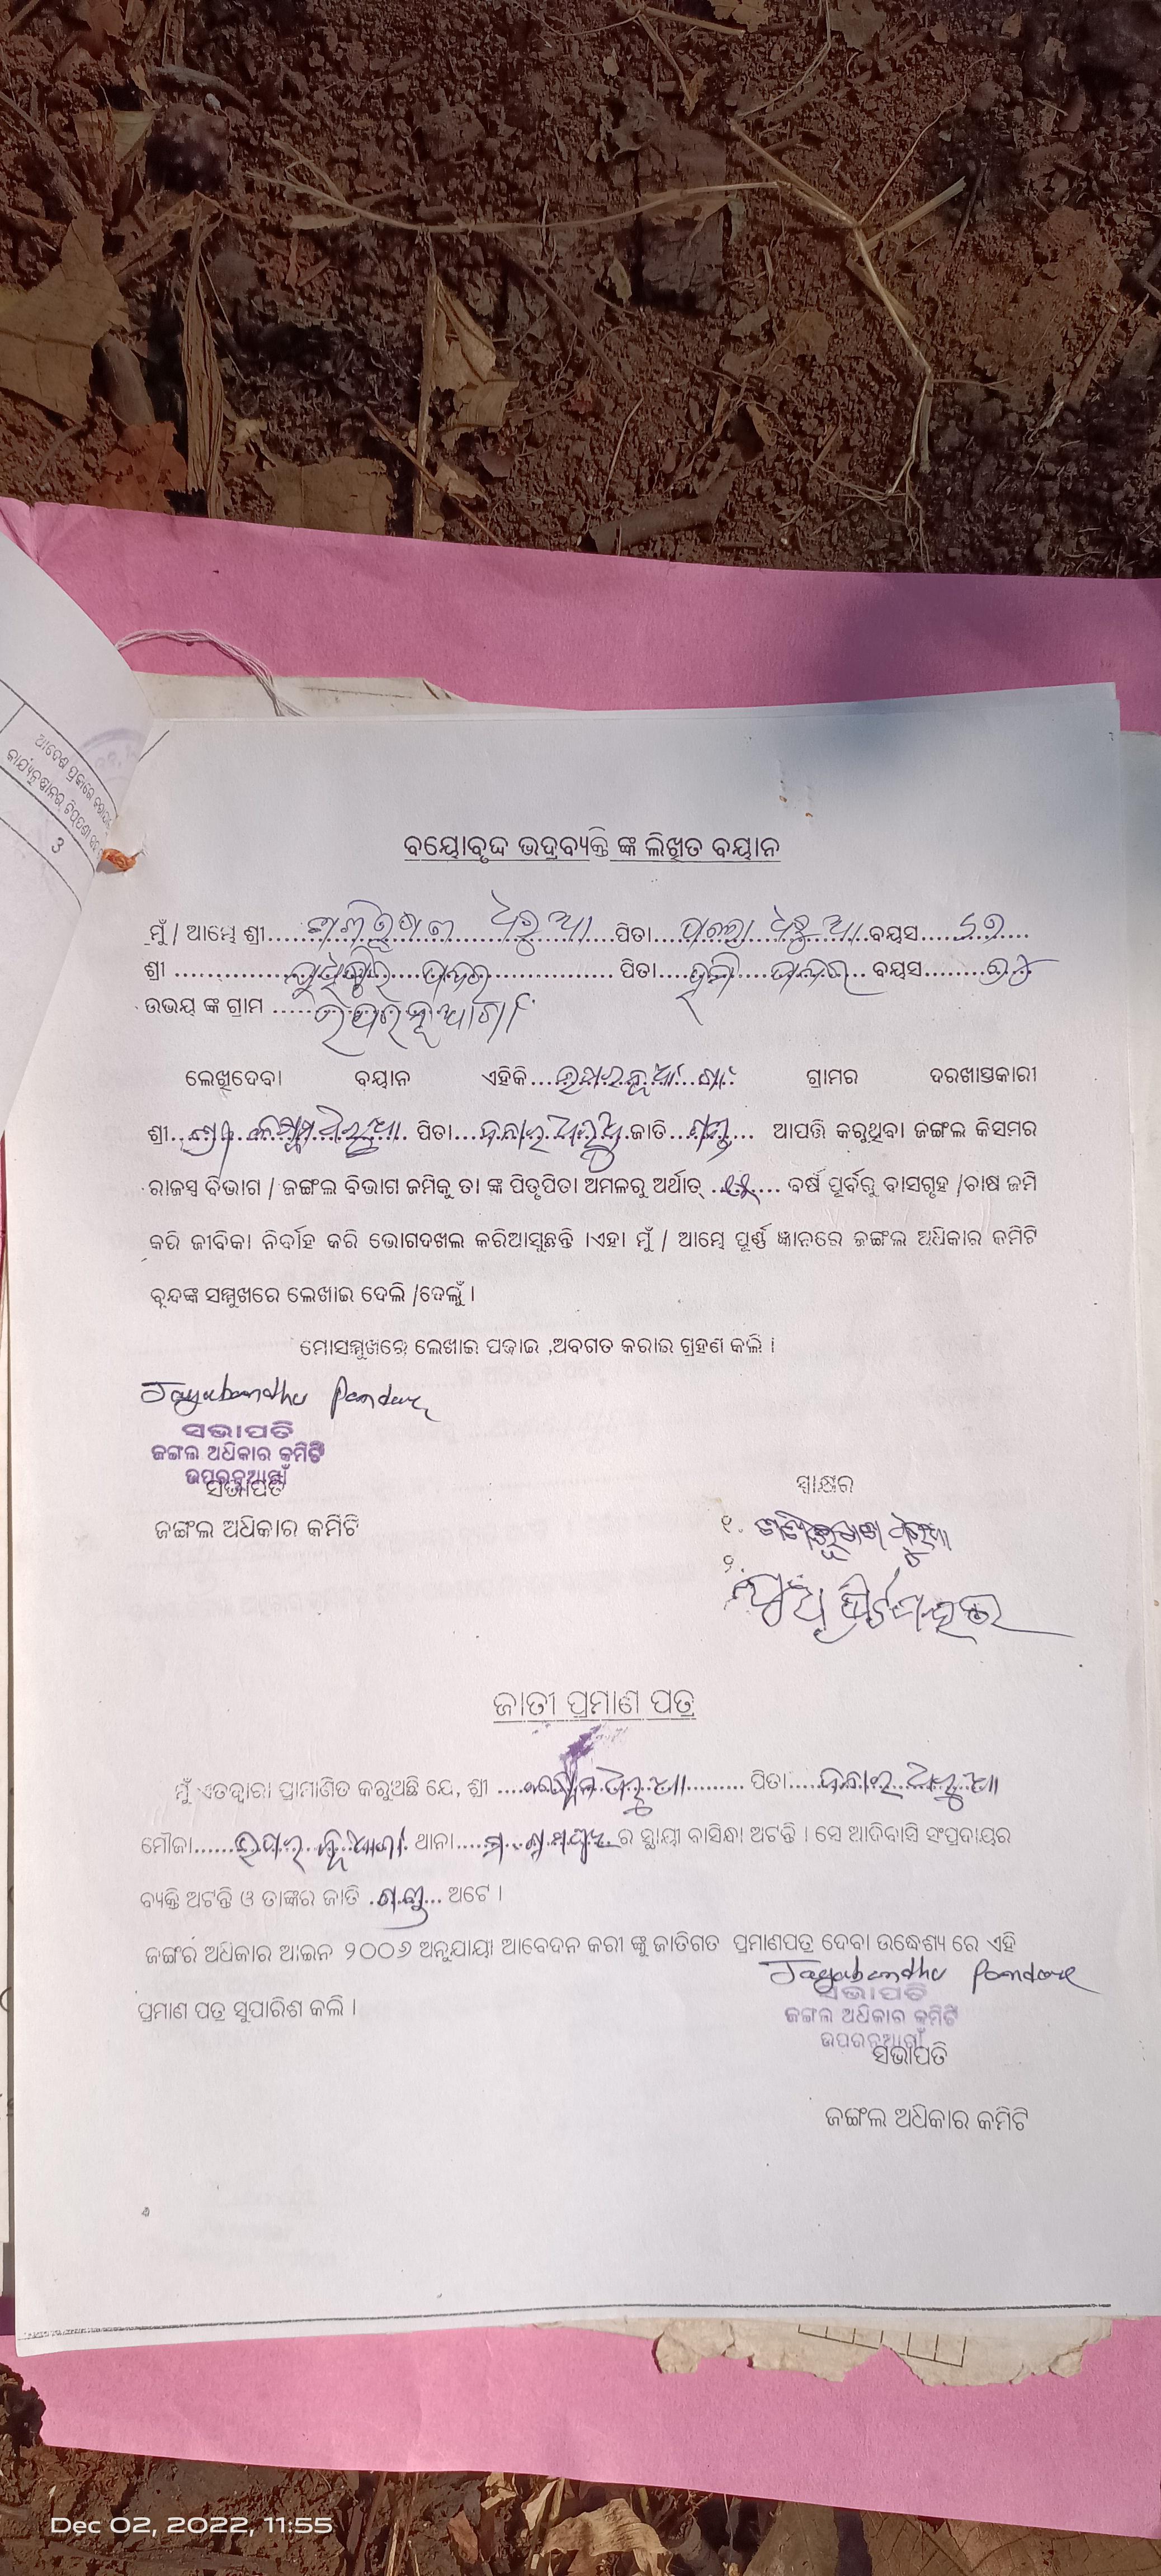 ଆଦେଶ ପ୍ରକାରେ
3
ବୟୋବୃଦ୍ଧ ଭଦ୍ରବ୍ୟକ୍ତି ଙ୍କ ଲିଖିତ ବୟାନ
ମୁଁ / ଆମ୍ଭେ ଶ୍ରୀ.......... ଧରୁଆ ....ପିତା.......... ଧରୁଆ.ବୟସ.....୬୭....
ଶ୍ରୀ .............................. ପିତା.......... ବୟସ..........
ଉଭୟ ଙ୍କ ଗ୍ରାମ ..... ଉପରନୂଆଗାଁ
ଲେଖିଦେବା ବୟାନ ଏହିକି...ଉପରନୂଆଗାଁ... ଗ୍ରାମର ଦରଖାସ୍ତକାରୀ
ଶ୍ରୀ.......... ଧରୁଆ.. ପିତା.......... ଧରୁଆ ଜାତି...ଗଣ୍ଡ... ଆପତ୍ତି କରୁଥିବା ଜଙ୍ଗଲ କିସମର
ରାଜସ୍ୱ ବିଭାଗ / ଜଙ୍ଗଲ ବିଭାଗ ଜମିକୁ ତା ଙ୍କ ପିତୃପିତା ଅମଳରୁ ଅର୍ଥାତ୍ ........ ବର୍ଷ ପୂର୍ବରୁ ବାସଗୃହ /ଚାଷ ଜମି
କରି ଜୀବିକା ନିର୍ବାହ କରି ଭୋଗଦଖଲ କରିଆସୁଛନ୍ତି ।ଏହା ମୁଁ / ଆମ୍ଭେ ପୂର୍ଣ୍ଣ ଜ୍ଞାନରେ ଜଙ୍ଗଲ ଅଧିକାର କମିଟି
ବୃନ୍ଦଙ୍କ ସମ୍ମୁଖରେ ଲେଖାଇ ଦେଲି /ଦେଲୁଁ ।
ମୋସମ୍ମୁଖରେ ଲେଖାଇ ପଢାଇ ,ଅବଗତ କରାଇ ଗ୍ରହଣ କଲି ।
Jayabandhu Pandare
ସଭାପତି
ଜଙ୍ଗଲ ଅଧିକାର କମିଟି
ଉପରନୁଆଗାଁ
ସଭାପତି
ଜଙ୍ଗଲ ଅଧିକାର କମିଟି
ସ୍ୱାକ୍ଷର
୧.
୨.
ଜାତୀ ପ୍ରମାଣ ପତ୍ର
ମୁଁ ଏତଦ୍ୱାରା ପ୍ରାମାଣିତ କରୁଅଛି ଯେ, ଶ୍ରୀ .......... ଧରୁଆ......... ପିତା.......... ଧରୁଆ
ମୌଜା......ଉପର ନୂଆଗାଁ. ଥାନା.......... ର ସ୍ଥାୟୀ ବାସିନ୍ଦା ଅଟନ୍ତି । ସେ ଆଦିବାସି ସଂପ୍ରଦାୟର
ବ୍ୟକ୍ତି ଅଟନ୍ତି ଓ ତାଙ୍କର ଜାତି .ଗଣ୍ଡ... ଅଟେ ।
ଜଙ୍ଗର ଅଧିକାର ଆଇନ ୨୦୦୬ ଅନୁଯାୟୀ ଆବେଦନ କରୀ ଙ୍କୁ ଜାତିଗତ ପ୍ରମାଣପତ୍ର ଦେବା ଉଦ୍ଧେଶ୍ୟ ରେ ଏହି
ପ୍ରମାଣ ପତ୍ର ସୁପାରିଶ କଲି ।
Jayabandhu Pandare
ସଭାପତି
ଜଙ୍ଗଲ ଅଧିକାର କମିଟି
ଉପରନୁଆଗାଁ
ସଭାପତି
ଜଙ୍ଗଲ ଅଧିକାର କମିଟି
Dec 02, 2022, 11:55